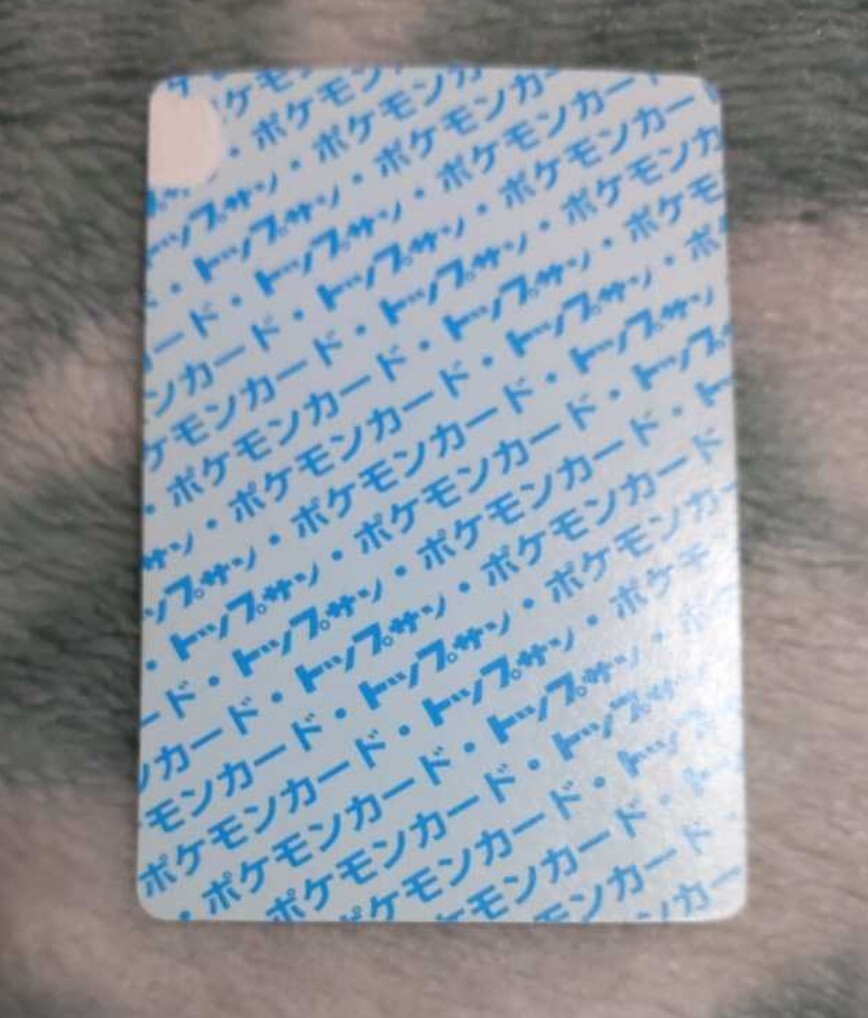 ケモンカ
・ポケモンカ
ップサン・ポケモンカ
・トップサン・ポケモンカー
ード・トップサン・ポケモンカー
ンカード・トップサン・ポケモンカー
ケモンカード・トップサン・ポケモンカ
・ポケモンカード・トップサン・ポケモ
サン・ポケモンカード・トップサン・ポ
ップサン・ポケモンカード・トップサン
・トップサン・ポケモンカード・トップ
ード・トップサン・ポケモンカード・ト
ンカード・トップサン・ポケモンカード
モンカード・トップサン・ポケモンカー
ポケモンカード・トップサン・ポケモ
・ポケモンカード・トップサン・ポ
ポケモンカード・トップサン
ケモンカード・トップ
モンカード・ト
ンカード
ンカー